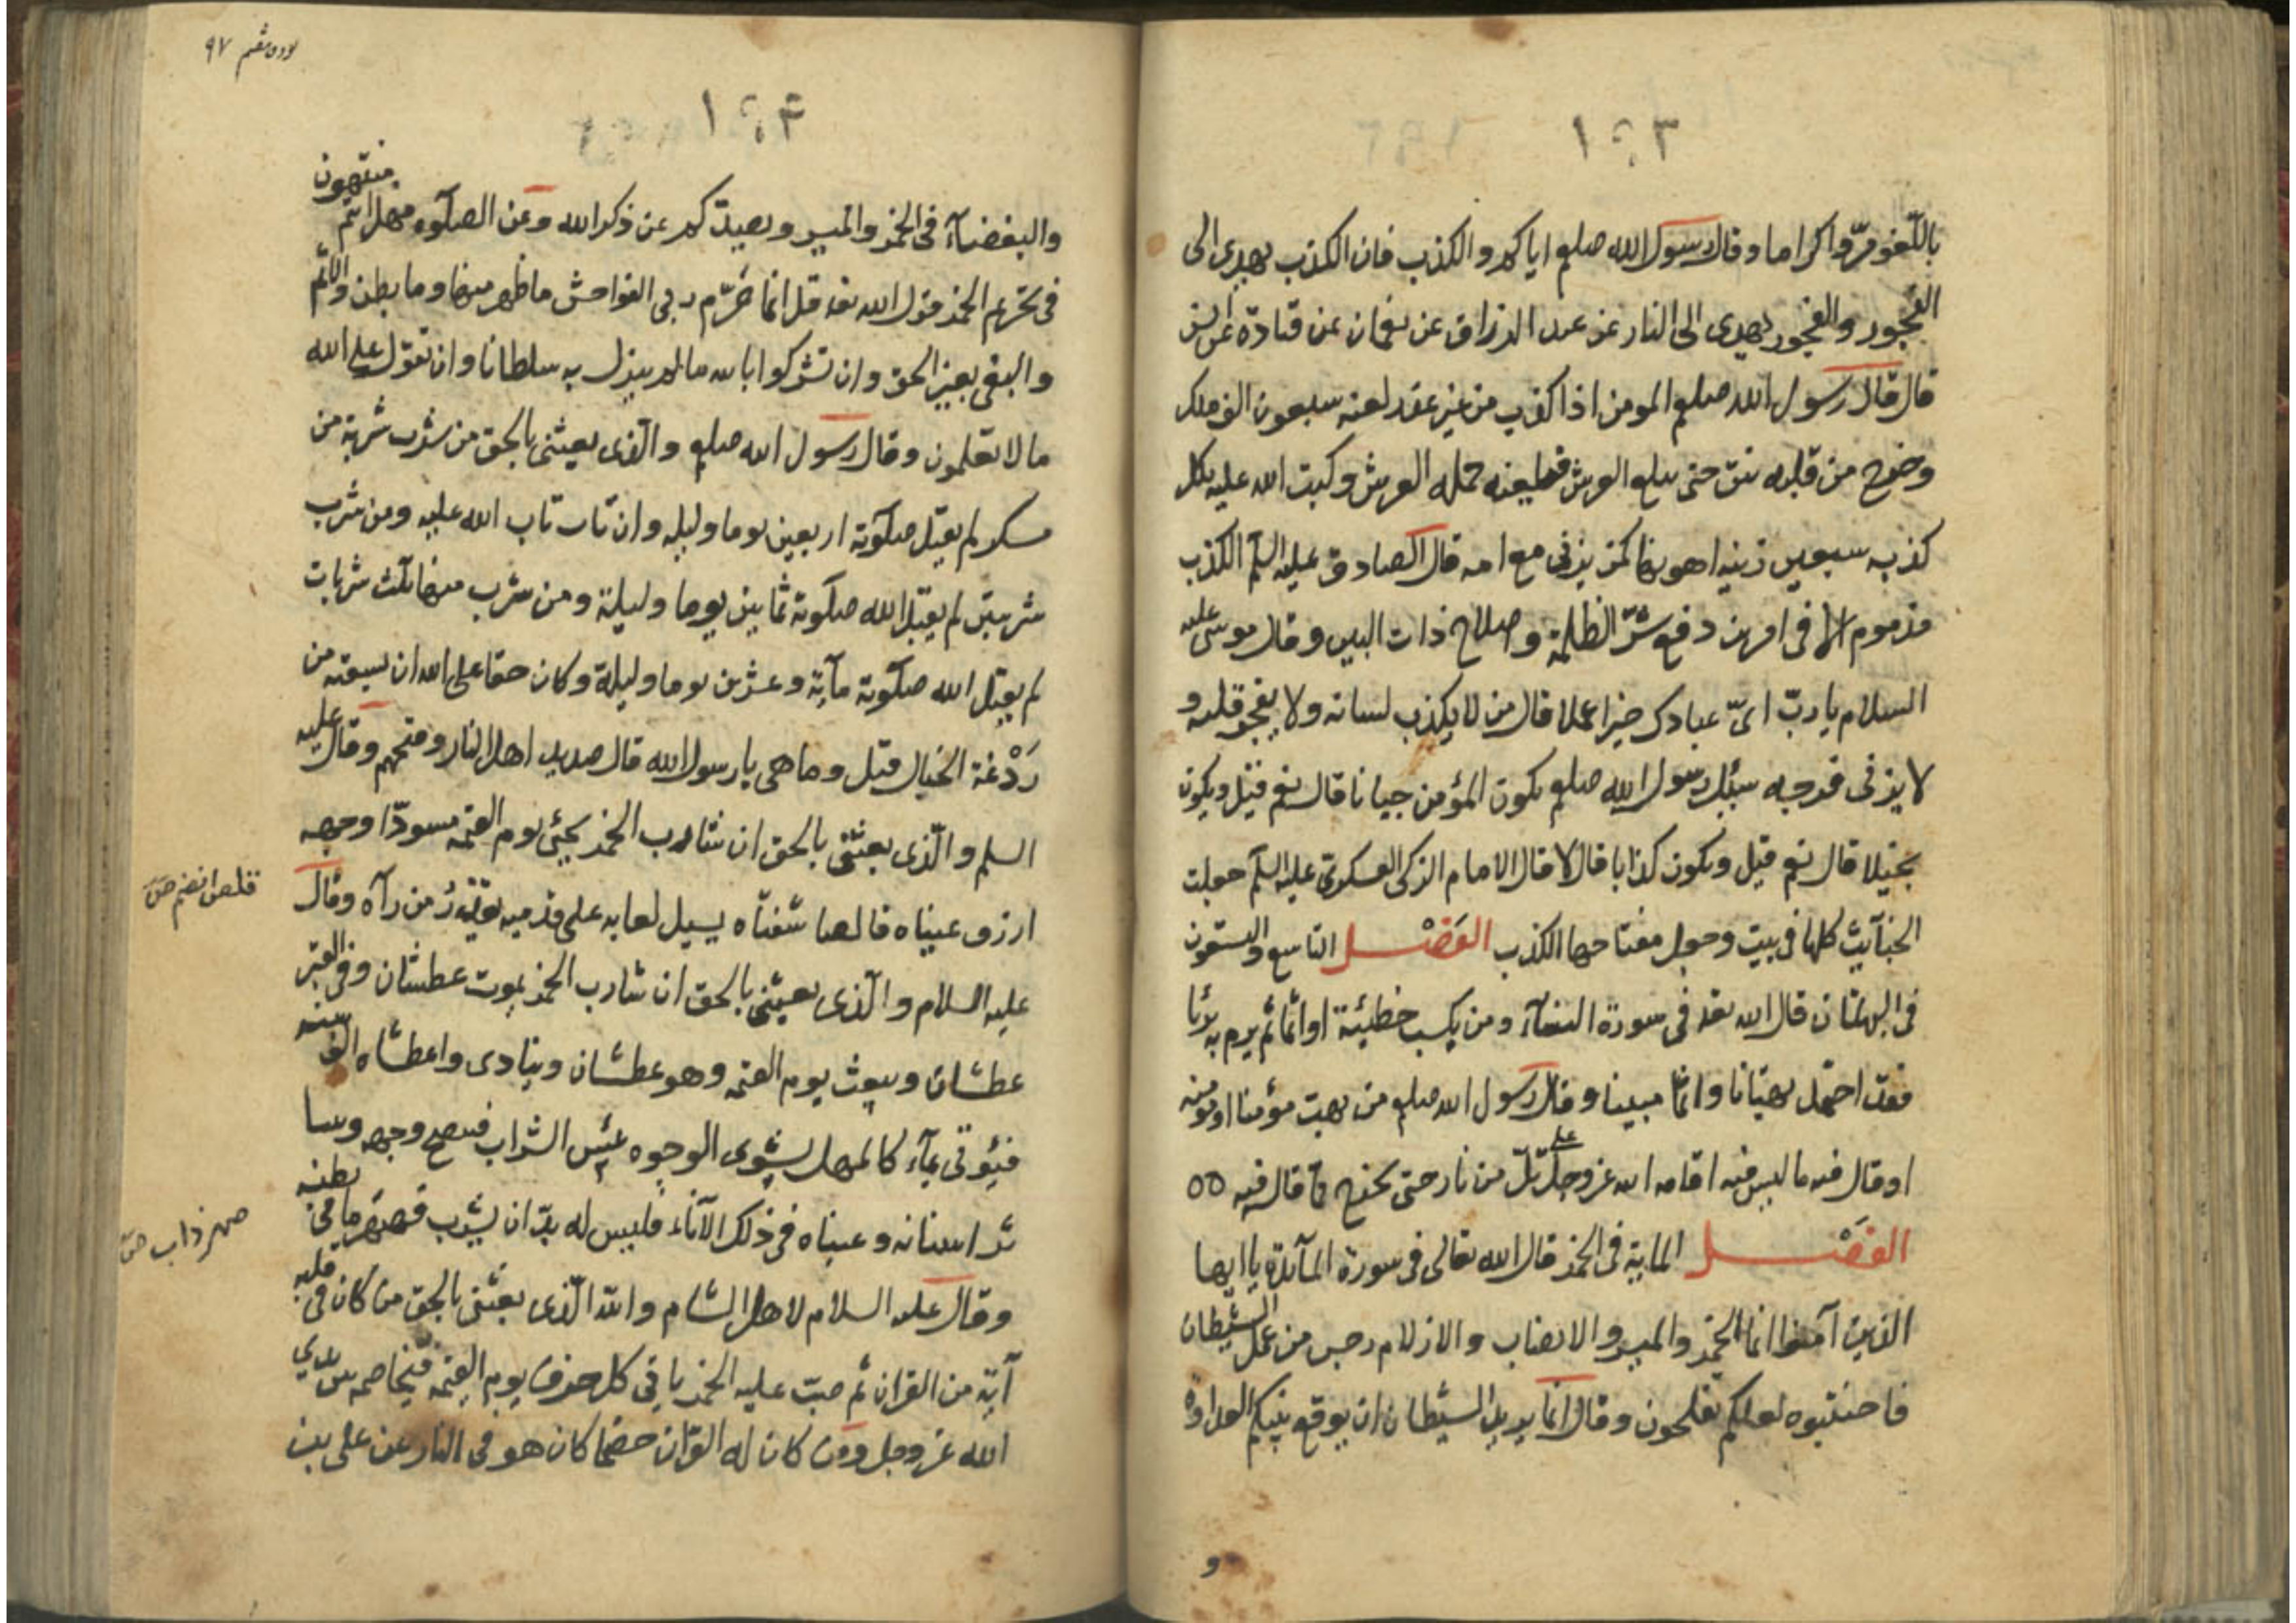 ١٩٣
باللّغو مرّوا كراما وقال رسول الله صلعم اياكم والكذب فان الكذب يهدى الى
الفجور والفجور يهدى الى النار عن عبد الرزاق عن نعمان عن قتادة عن انس
قال قال رسول الله صلعم المومن اذا كذب من غير عذر لعنه سبعون الف ملك
وخرج من قلبه نتن حتى يبلغ العرش فيلعنه حملة العرش وكتب الله عليه بكل
كذبه سبعين زنيه اهونها كمن يزنى مع امه قال الصادق عليه السلم الكذب
مذموم الا فى امرين دفع شرّ الظلمة وصلاح ذات البين وقال موسى عليه
السلام يا ربّ اىّ عبادك خير عملا قال من لا يكذب لسانه ولا يفجر قلبه و
لا يزنى فرجه سئل رسول الله صلعم يكون المؤمن جبانا قال نعم قيل ويكون
بخيلا قال نعم قيل ويكون كذابا قال لا قال الامام الزكى العسكرى عليه السلم جعلت
الخبآيث كلها فى بيت وجعل مفتاحها الكذب الفَصْل التاسع والتسعون
فى البهتان قال الله تعه فى سورة النسآء ومن يكسب خطيئة او اثما ثم يرم به برئا
فقد احتمل بهتانا واثما مبينا وقال رسول الله صلعم من بهت مؤمنا او مؤمنه
او قال فيه ما ليس فيه اقامه الله عز وجل على تلّ من نار حتى يخرج مما قال فيه ٥٥
الفَصْل الماية فى الخمر قال الله تعالى فى سورة المآئدة يا ايها
الذين آمنوا انما الخمر والميسر والانصاب والازلام رجس من عمل الشيطان
فاجتنبوه لعلكم تفلحون وقال انما يريد الشيطان ان يوقع بينكم العداوة
و
٩٧
١٩۴
والبغضآء فى الخمر والميسر ويصدّكم عن ذكر الله وعن الصلوة فهل انتم منتهون
فى تحريم الخمر قول الله تعه قل انما حَرّم ربى الفواحش ما ظهر منها وما بطن والاثم
والبغى بغير الحق وان تشركوا بالله ما لم ينزل به سلطانا وان تقولوا على الله
ما لا تعلمون وقال رسول الله صلعم والذى بعثنى بالحق من شرب شربة من
مسكر لم يقبل صلوته اربعين يوما وليله وان تاب تاب الله عليه ومن شرب
شربتين لم يقبل الله صلوته ثمانين يوما وليلة ومن شرب منها ثلث شربات
لم يقبل الله صلوته مآية وعشرين يوما وليلة وكان حقا على الله ان يسقيه من
رَدْغة الخبال قيل وما هى يا رسول الله قال صديد اهل النار وقيحهم وقال عليه
السلم والّذى بعثنى بالحق ان شارب الخمر يجئ يوم القيمه مسودّا وجهه
ازرق عيناه قالصا شفتاه يسيل لعابه على قدميه يقذر من رآه وقال
عليه السلام والّذى بعثنى بالحق ان شارب الخمر يموت عطشان وفى القبر
عطشان ويبعث يوم القيمه وهو عطشان وينادى واعطشاه الف سنه
فيؤتى بمآء كالمهل يشوى الوجوه بئس الشراب فينضج وجهه ويتنا
ثر اسنانه وعيناه فى ذلك الآناء فليس له بدّ ان يشرب فصهر ما فى بطنه
وقال عليه السلام لاهل الشام والله الّذى بعثنى بالحق من كان فى قلبه
آية من القران ثم صبّ عليه الخمر ياتى كل حرف يوم القيمه فيخاصمه بين يدي
الله عز وجل ومن كان له القرآن خصما كان هو فى النار عن على بن
قلص انضم ص
صهر ذاب ص